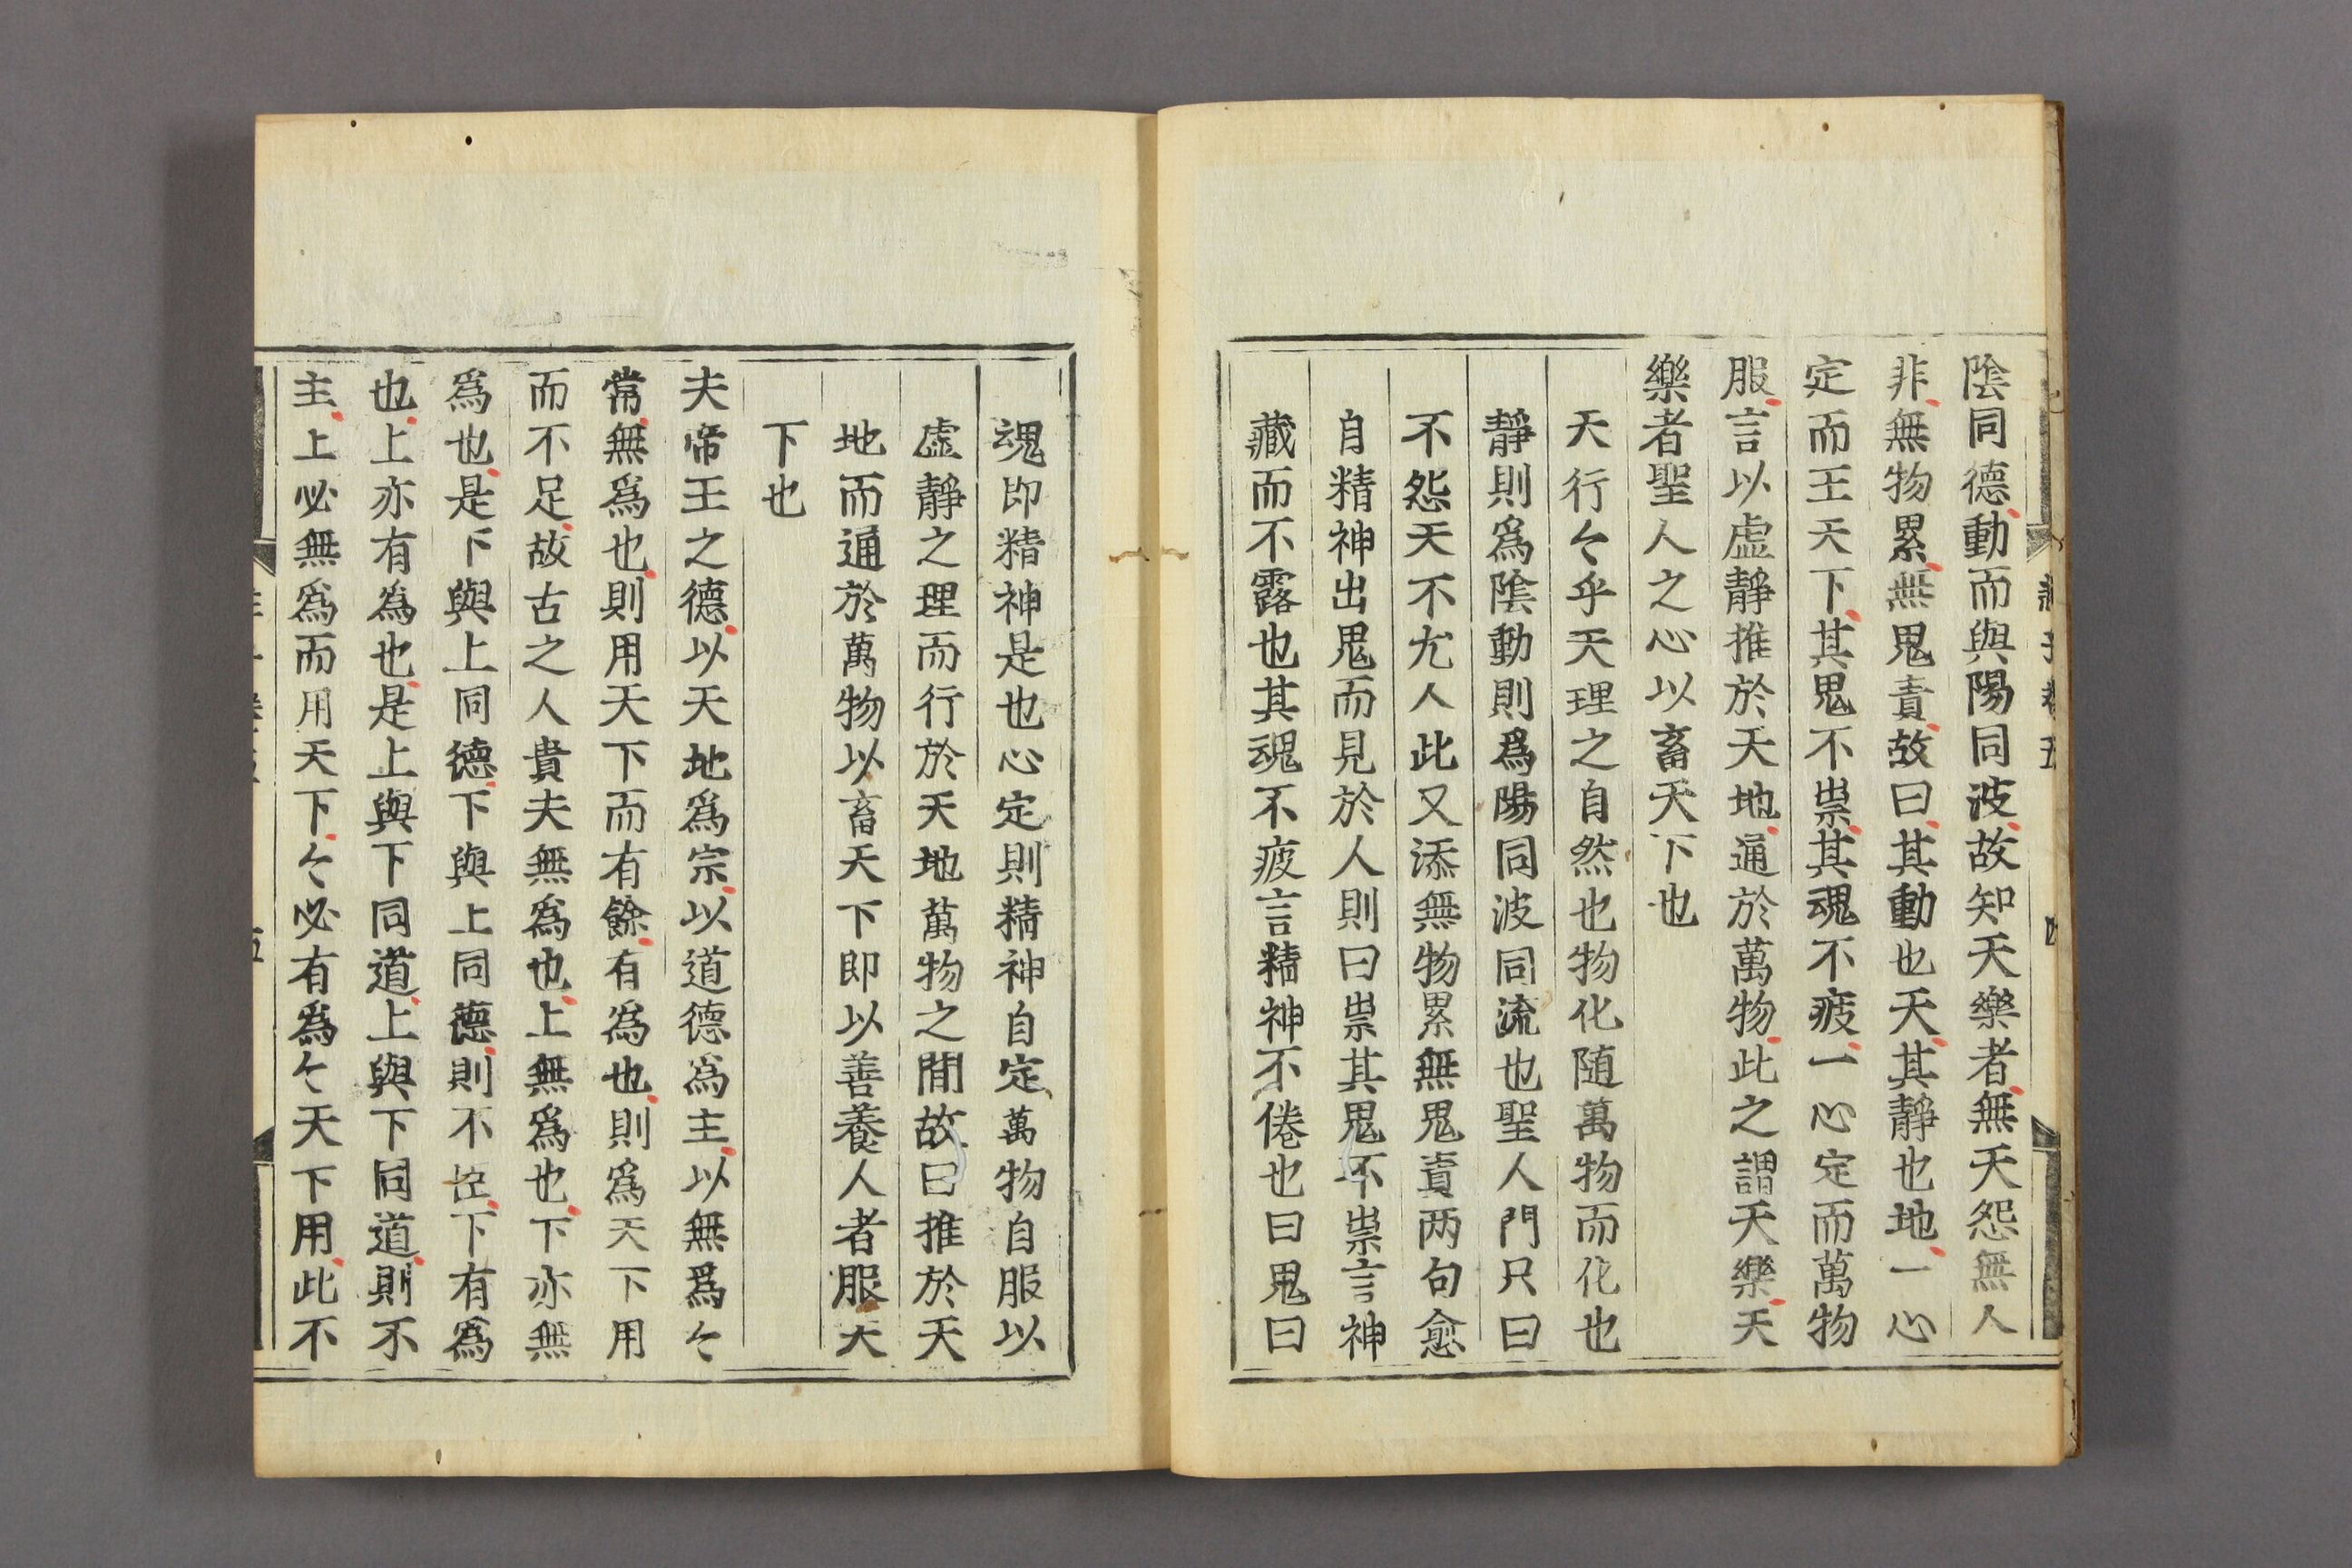 陰同德動而與陽同波故知天樂者無天怨無人
非無物累無鬼責故曰其動也天其靜也地一心
定而王天下其鬼不祟其魂不疲一心定而萬物
服言以虛靜推於天地通於萬物此之謂天樂天
樂者聖人之心以畜天下也
天行々乎天理之自然也物化随萬物而化也
靜則爲陰動則爲陽同波同流也聖人門只曰
不怨天不尤人此又添無物累無鬼責两句愈
自精神出鬼而見於人則曰祟其鬼不祟言神
藏而不露也其魂不疲言精神不倦也曰鬼曰
魂即精神是也心定則精神自定萬物自服以
虛靜之理而行於天地萬物之間故曰推於天
地而通於萬物以畜天下即以善養人者服天
下也
夫帝王之德以天地爲宗以道德爲主以無爲々
常無爲也則用天下而有餘有爲也則爲天下用
而不足故古之人貴夫無爲也上無爲也下亦無
爲也是下與上同德下與上同德則不臣下有爲
也上亦有爲也是上與下同道上與下同道則不
主上必無爲而用天下々必有爲々天下用此不